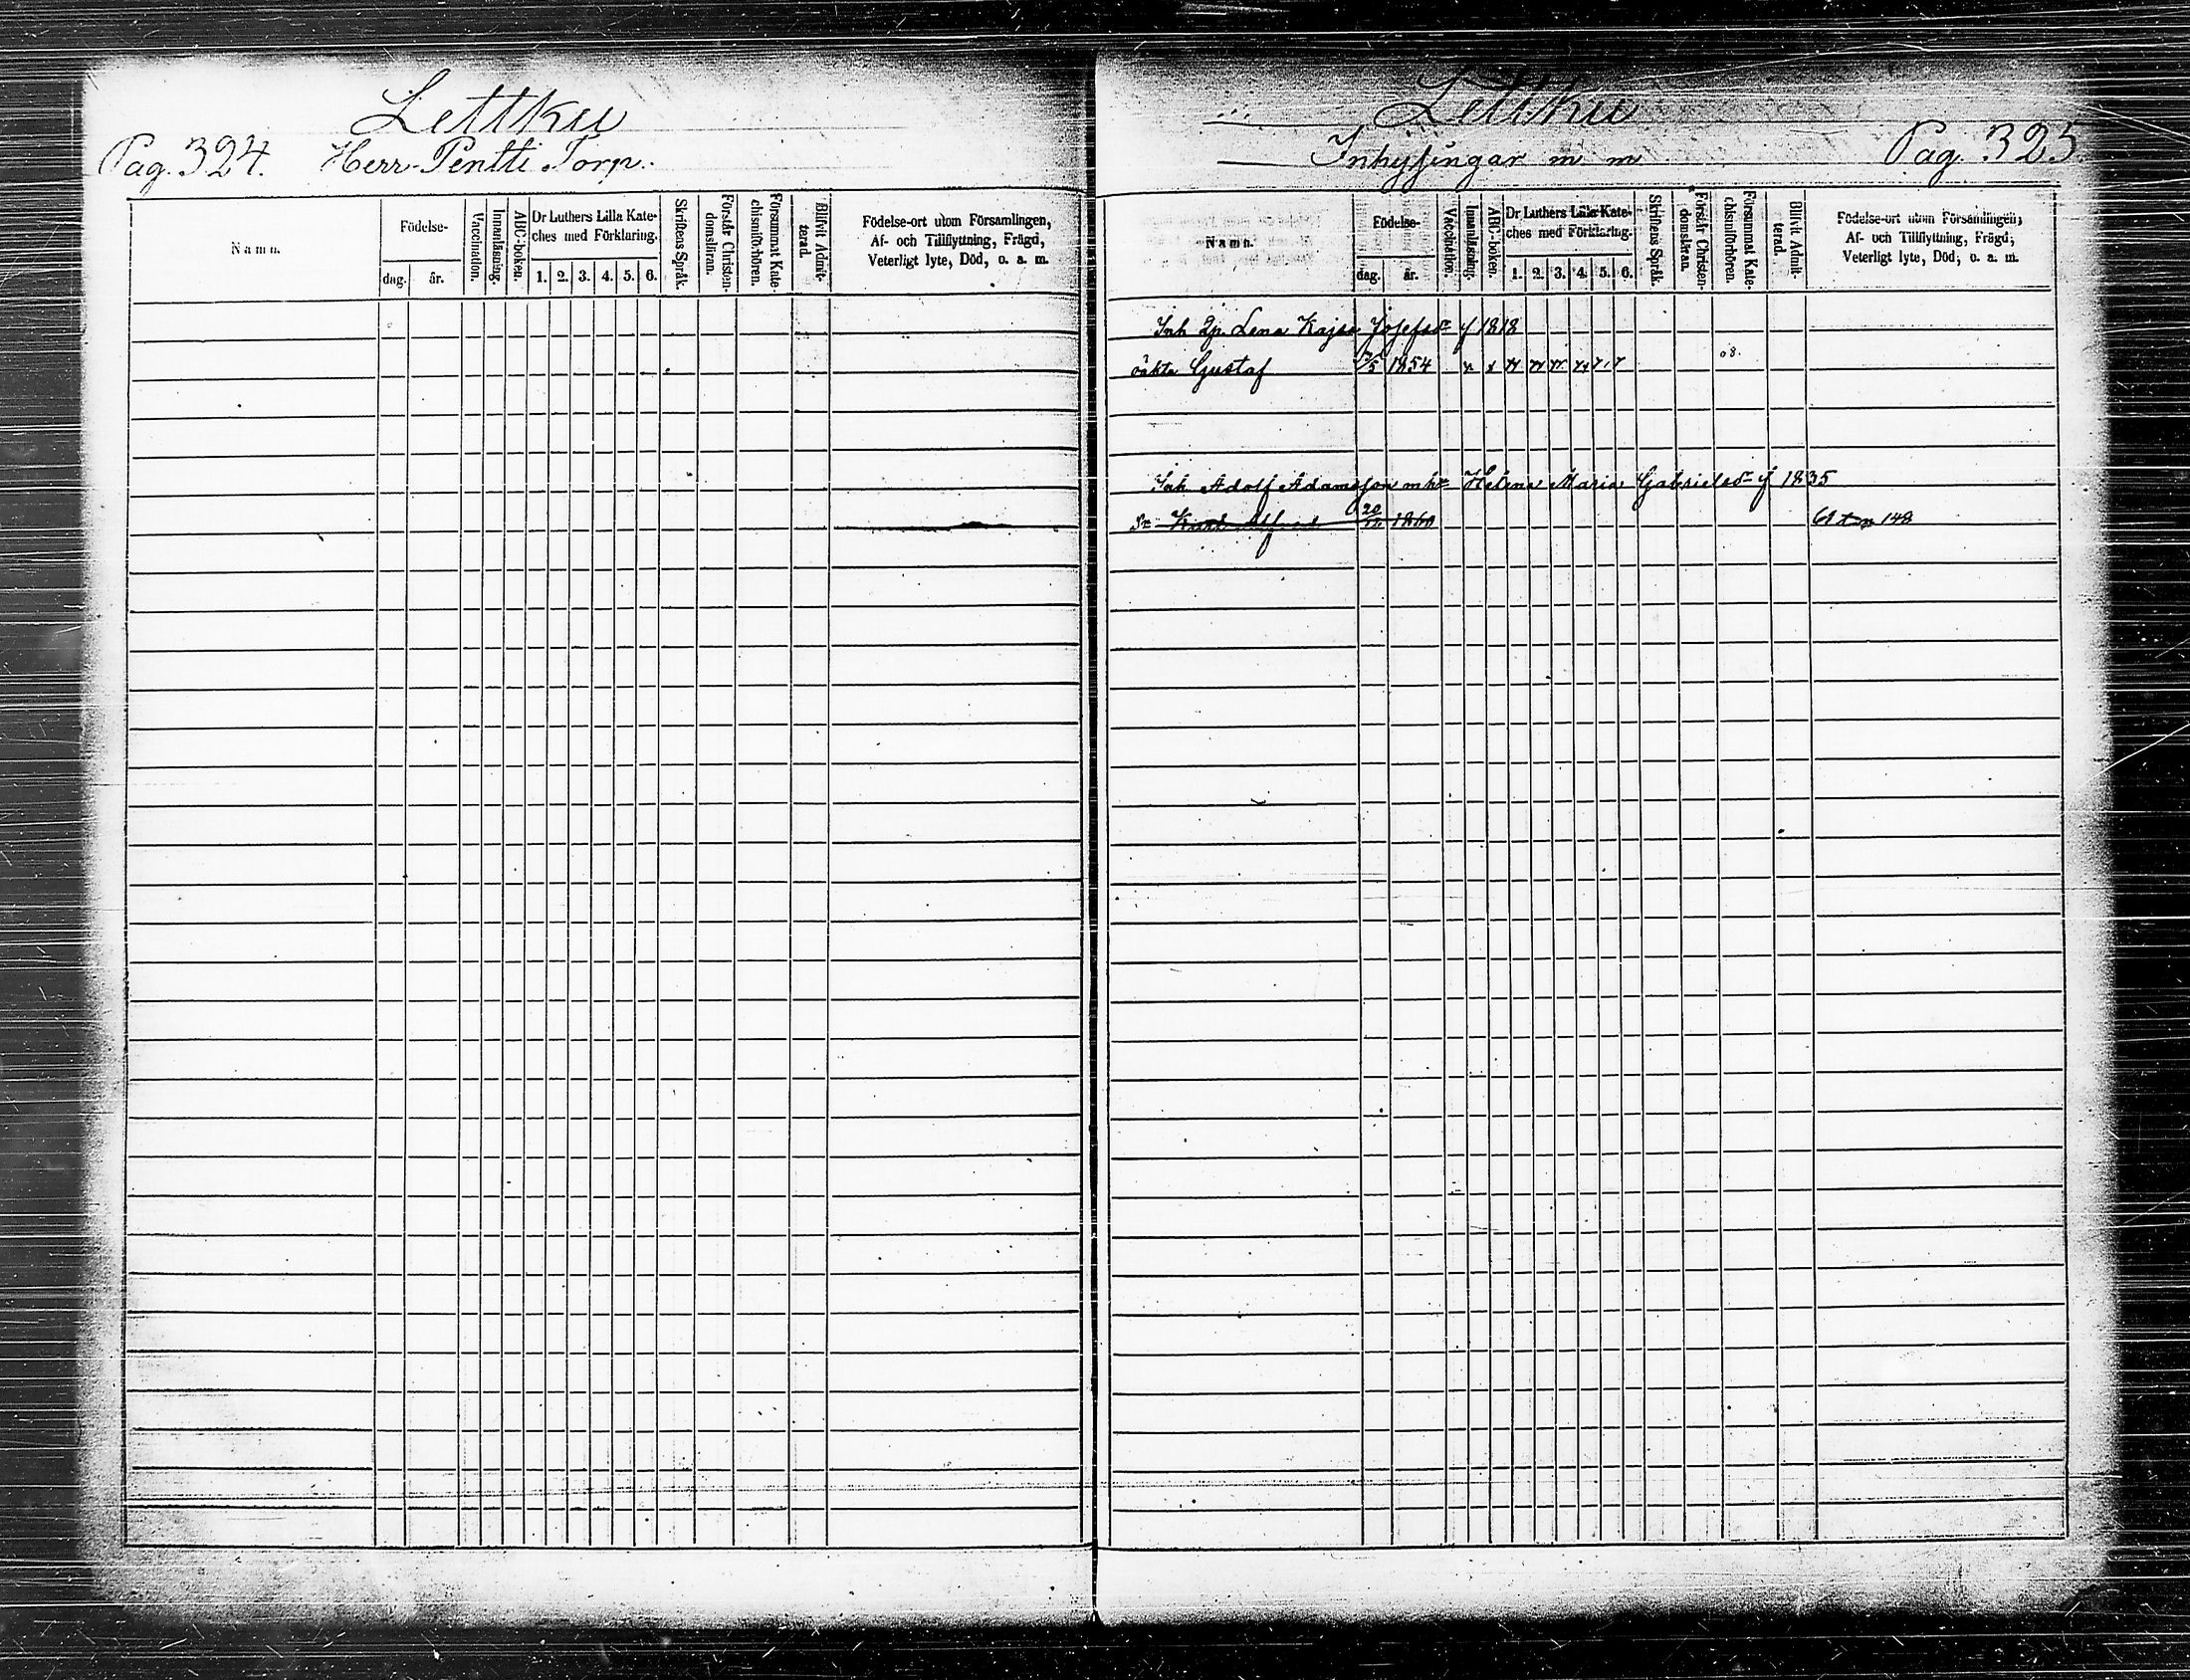 Lettku
Pag. 324. Herr-Pentti Torp.
Namn.
Födelse-
dag. år.
Vaccination.
Innanläsning.
ABC-boken.
Dr Luthers Lilla Kate-
ches med Förklaring.
1. 2. 3. 4. 5. 6.
Skriftens Språk.
Förstår Christen-
domsläran.
Försummat Kate-
chismiförhören.
Blifvit Admit-
terad.
Födelse-ort utom Församlingen,
Af- och Tillflyttning, Frägd,
Veterligt lyte, Död, o. a. m.
Lettku
Inhysingar m m
Pag. 325
Namn.
Födelse-
dag. år.
Vaccination.
Innanläsning.
ABC-boken.
Dr Luthers Lilla Kate-
ches med Förklaring.
1. 2. 3. 4. 5. 6.
Skriftens Språk.
Förstår Christen-
domsläran.
Försummat Kate-
chismiförhören.
Blifvit Admit-
terad.
Födelse-ort utom Församlingen,
Af- och Tillflyttning, Frägd,
Veterligt lyte, Död, o. a. m.
Inh Qp. Lena Kajsa Josefsdr f 1818
oäkta Gustaf 1854
Inh Adolf Adamsson m hu Helena Maria Gabrielsdr f 1835
Sn Karl Alfred 1860 148